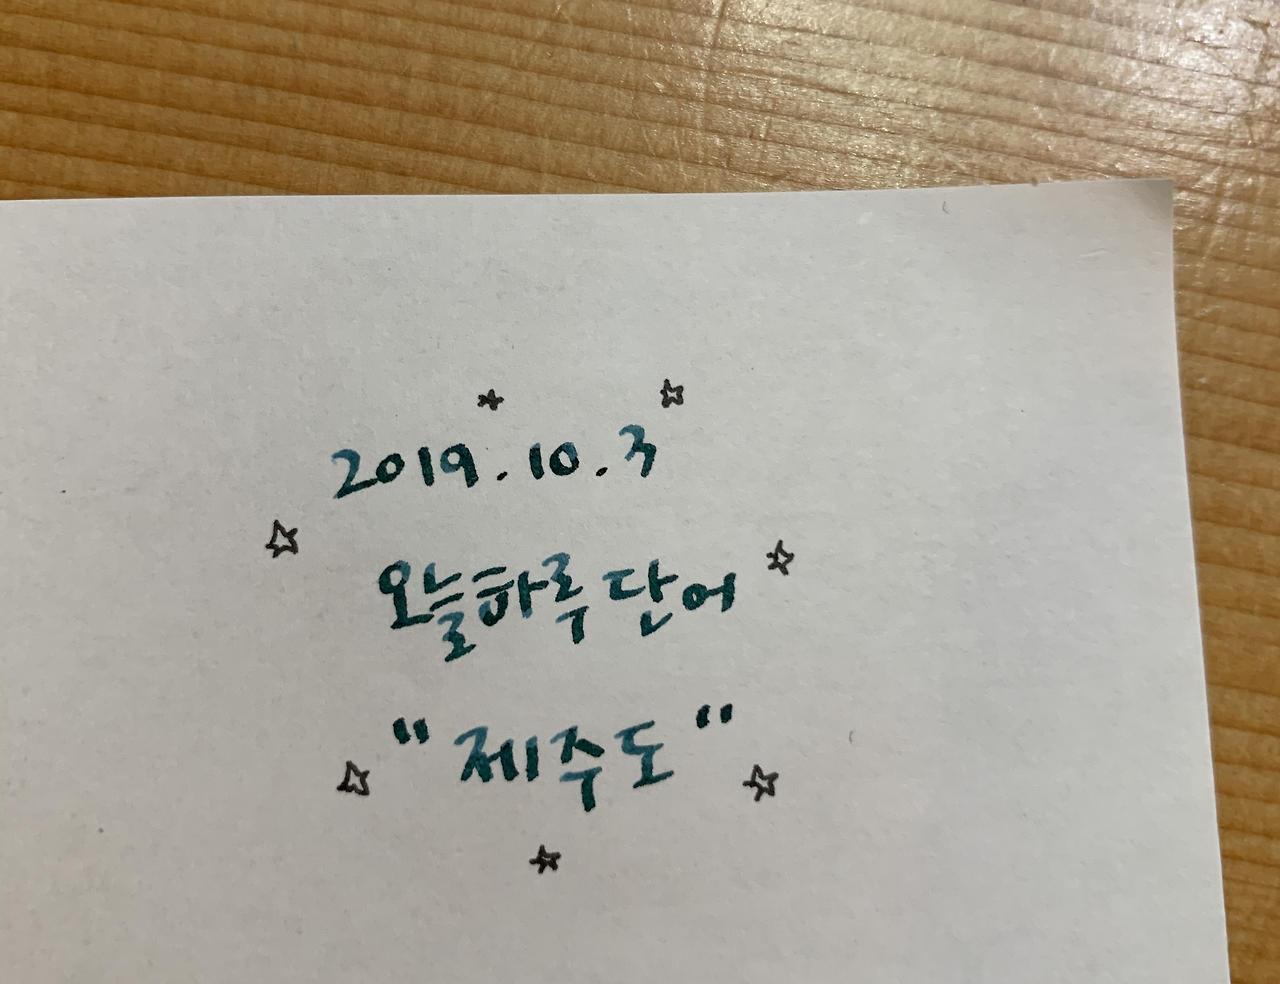 2019.10.3
오늘하루 단어
"제주도"